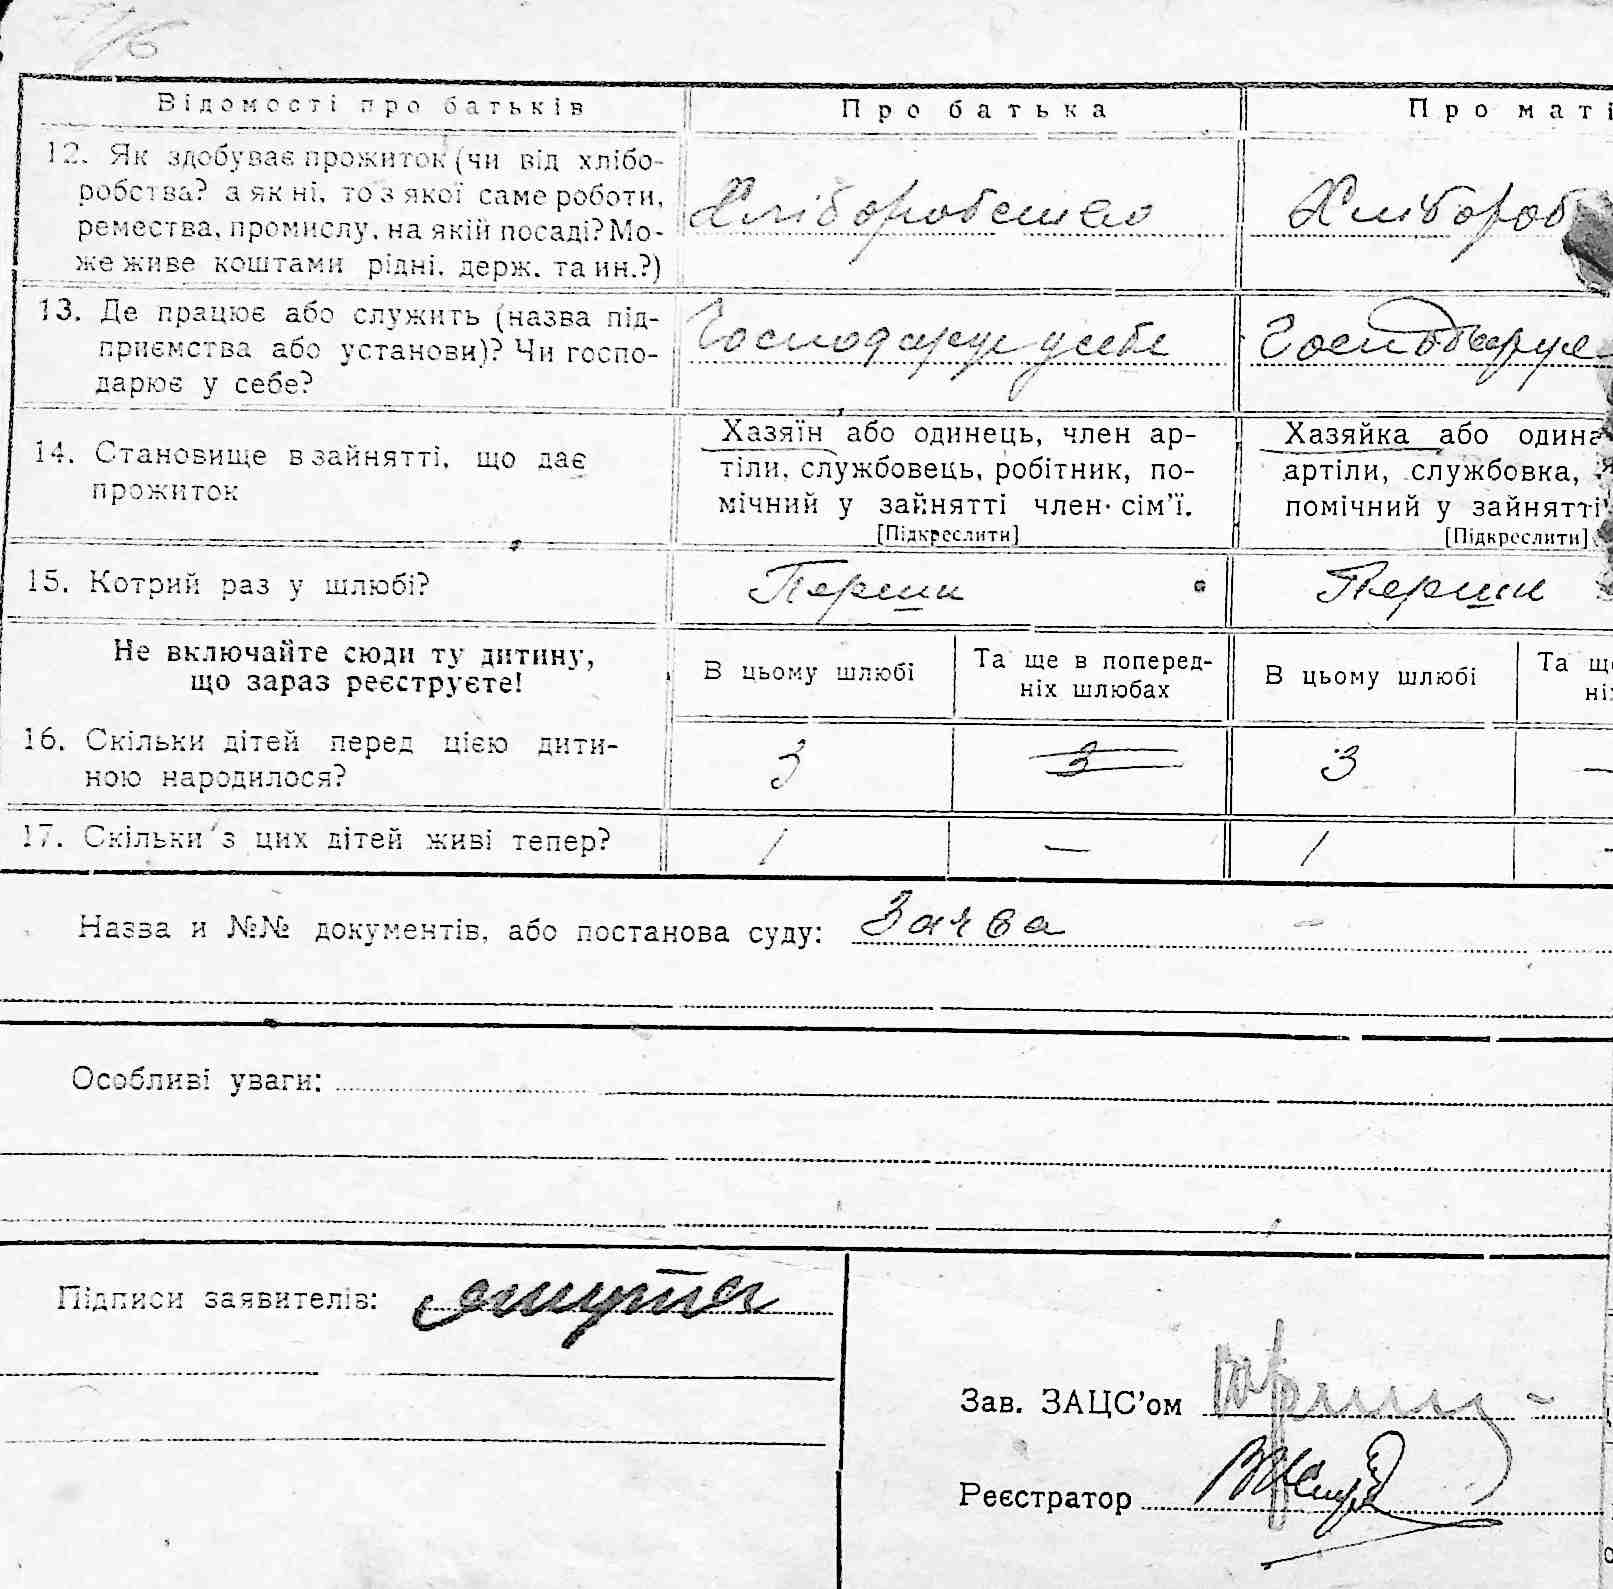 1/6
Відомості про батьків | Про батька | Про маті
12. Як здобуває прожиток (чи від хлібо-
робства? а як ні, то з якої саме роботи,
ремества, промислу, на якій посаді? Мо-
же живе коштами рідні, держ. та ин.?)
Хліборобство | Хлібороб
13. Де працює або служить (назва під-
приємства або установи)? Чи госпо-
дарює у себе?
Господарує у себе | Господарує
14. Становище в зайнятті, що дає
прожиток
Хазяїн або одинець, член ар-
тіли, службовець, робітник, по-
мічний у зайнятті член сім'ї.
[Підкреслити]
Хазяйка або один
артіли, службовка,
помічний у зайнятті
[Підкреслити]
15. Котрий раз у шлюбі? | Перший | Перший
Не включайте сюди ту дитину,
що зараз реєструєте!
В цьому шлюбі | Та ще в поперед-
ніх шлюбах | В цьому шлюбі | Та ще
ніх
16. Скільки дітей перед цією дити-
ною народилося?
3 | 3 | 3 | —
17. Скільки з цих дітей живі тепер? | 1 | — | 1 | -
Назва и №№ документів, або постанова суду: Заява
Особливі уваги:
Підписи заявителів:
Зав. ЗАЦС'ом
Реєстратор